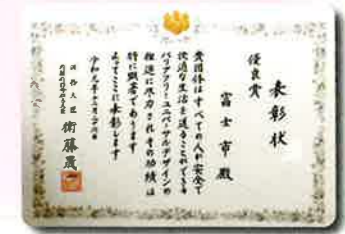 表彰状
優良賞
富士市殿
貴団体はすべての人が安全で
快適な生活を送ることができる
バリアフリー・ユニバーサルデザインの
推進に尽力されその功績は
特に顕著であります
よってここに表彰します
令和元年十二月二十六日
内閣府特命担当大臣
衛藤晟一